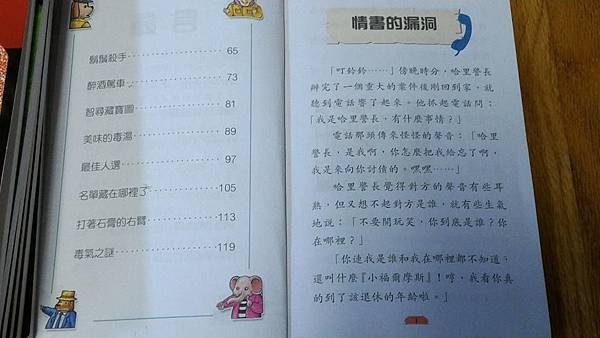 鬍鬚殺手 65
醉酒駕車 73
智尋藏寶圖 81
美味的毒湯 89
最佳人選 97
名單藏在哪裡了 105
打著石膏的右臂 113
毒氣之謎 119
情書的漏洞
「叮鈴鈴……」傍晚時分，哈里警長
辦完了一個重大的案件後剛回到家，就
聽到電話響了起來，他抓起電話問：
「我是哈里警長，有什麼事情？」
電話那頭傳來怪怪的聲音：「哈里
警長，是我啊，你怎麼把我給忘了啊，
我是來向你討債的。嘿嘿……」
哈里警長覺得對方的聲音有些耳
熟，但又想不起對方是誰，就有些生氣
地說：「不要開玩笑，你到底是誰？你
在哪裡？」
「你連我是誰和我在哪裡都不知道，
還叫什麼『小福爾摩斯』！哼，我看你真
的到了該退休的年齡啦。」
1